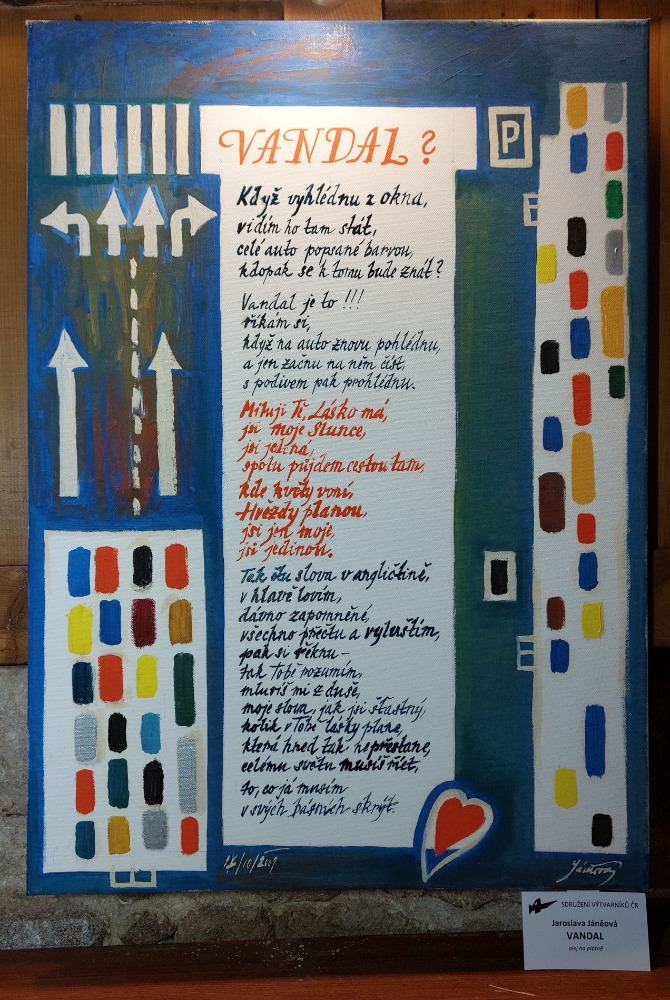 VANDAL ?
P
Když vyhlédnu z okna,
vidím ho tam stát,
celé auto popsané barvou,
kdopak se k tomu bude znát?
Vandal je to !!!
říkám si,
když na auto znovu pohlédnu,
a jen začnu na něm číst,
s podivem pak prohlédnu.
Miluji Tě, Lásko má,
jsi moje Slunce,
jsi jediná,
spolu půjdem cestou tam,
kde květy voní,
Hvězdy planou,
jsi jen moje,
jsi jedinou.
Tak čtu slova v angličtině,
v hlavě lovím,
dávno zapomnění,
všechno přečtu a vyluštím,
pak si řeknu -
tak Tobě rozumím,
mluvíš mi z duše,
moje slova, jak jsi šťastný,
kolik v Tobě lásky plane,
která hned tak nepřestane,
celému světu musíš říct,
to, co já musím
v svých básních skrýt.
SDRUŽENÍ VÝTVARNÍKŮ ČR
Jaroslava Jáněová
VANDAL
olej na plátně